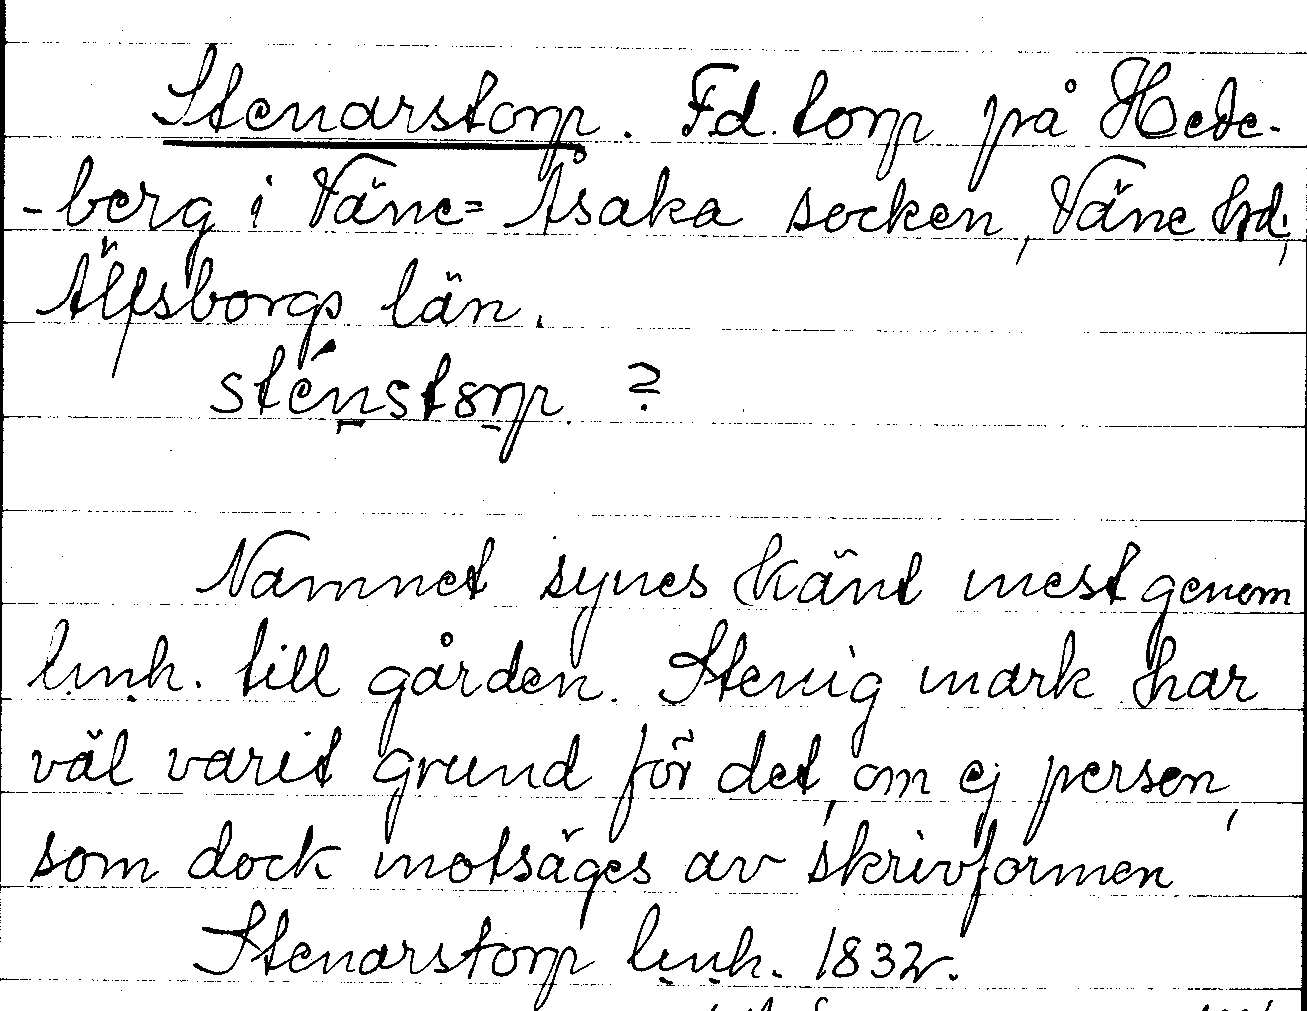 Stenarstorp. Fd. torp på Hede-
-berg i Väne=Åsaka socken, Väne hd;
Älfsborgs län.
sténstorp. ?
Namnet synes känt mest genom
lmh. till gården. Stenig mark har
väl varit grund för det, om ej person,
som dock motsäges av skrivformen
Stenarstorp lmh. 1832.